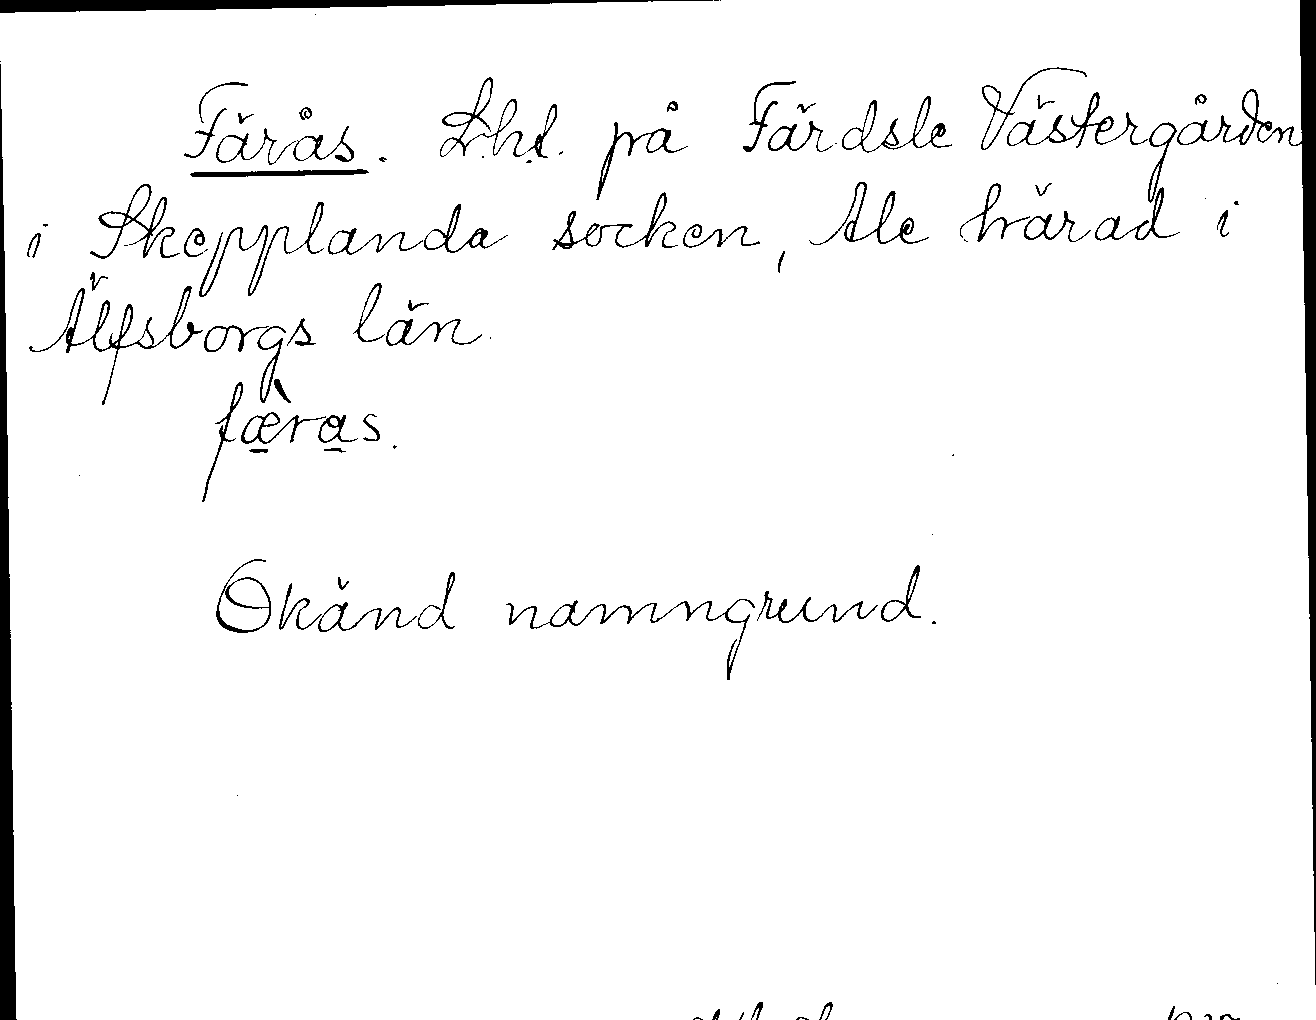 Färås. Lhl. på Färdsle Västergården
i Skepplanda socken, Ale härad i
Älfsborgs län.
fæ̀ras.
Okänd namngrund.